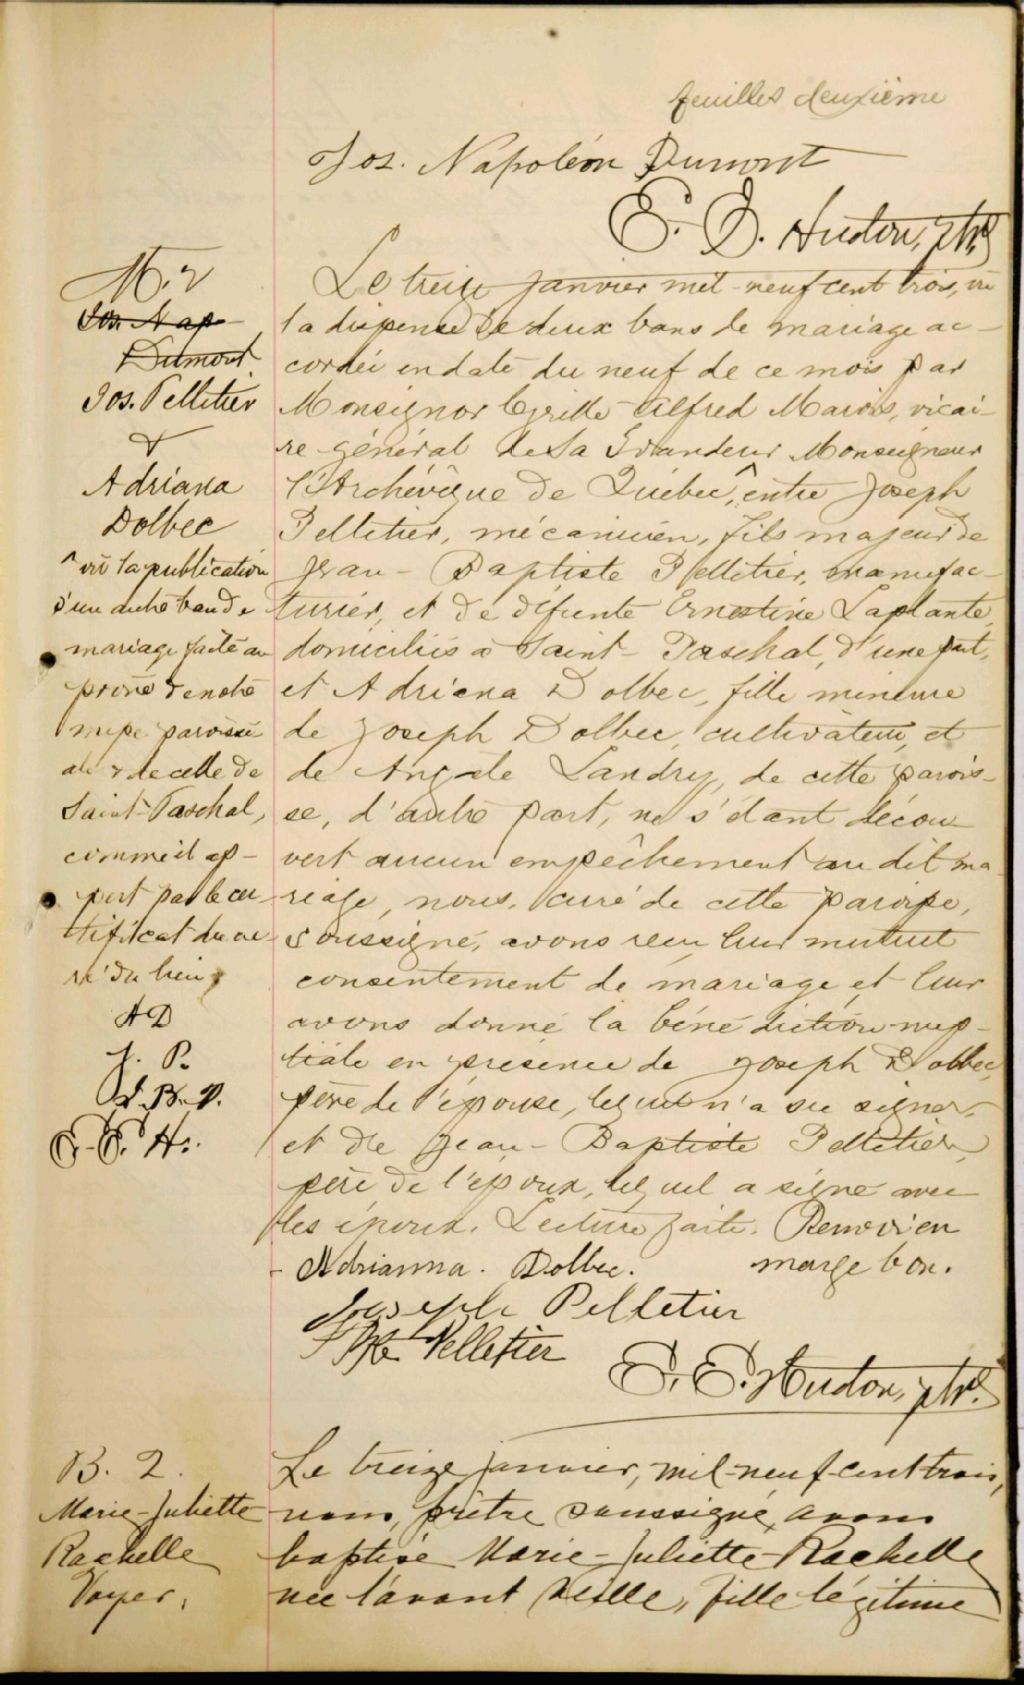 feuilles deuxième
Jos. Napoléon Dumont
E. E. Hudon, ptre
M. 2
Jos. Nap
Dumont
Jos. Pelletier
&
Adriana
Dolbec
^ vu la publication
d'un autre ban de
mariage faite au
prône de notre
messe paroissi
ale & de celle de
Saint-Paschal,
comme il ap-
pert par le cer
tificat du cu
ré du lieu,
A D
J. P.
J. B. P.
E. E. H.
Le treize janvier mil-neuf cent trois, vu
la dispense de deux bans de mariage ac-
cordée en date du neuf de ce mois par
Monsignor Cyrille Alfred Marois, vicai-
re-général de Sa Grandeur Monseigneur
l'Archévêque de Québec,^ entre Joseph
Pelletier, mécanicien, fils majeur de
Jean-Baptiste Pelletier, manufac-
turier, et de défunte Ernestine Laplante,
domiciliés à Saint-Paschal, d'une part,
et Adriana Dolbec, fille mineure
de Joseph Dolbec, cultivateur, et
de Angèle Landry, de cette parois-
se, d'autre part, ne s'étant décou-
vert aucun empêchement au dit ma-
riage, nous, curé de cette paroisse,
soussigné, avons reçu leur mutuel
consentement de mariage et leur
avons donné la bénédiction nup-
tiale en présence de Joseph Dolbec,
père de l'épouse, lequel n'a su signer,
et de Jean-Baptiste Pelletier,
père de l'époux, lequel a signé avec
les époux. Lecture faite. Renvoi en
marge bon.
Adrianna. Dolbec.
Joseph Pelletier
J Bte Pelletier
E. E. Hudon, ptre.
B. 2.
Marie-Juliette
Rachelle
Voyer.
Le treize janvier, mil-neuf-cent trois,
nous, prêtre soussigné, avons
baptisé Marie-Juliette-Rachelle
née l'avant veille, fille légitime